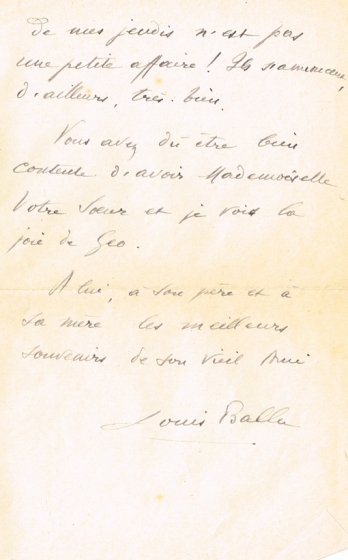 de mes jeudis n'est pas
une petite affaire ! Ils s'annoncent,
d'ailleurs, très bien.
Vous avez dû être bien
contente d'avoir Mademoiselle
Votre Sœur et je vois la
joie de Geo.
A lui, à son père et à
sa mère les meilleurs
souvenirs de son vieil Ami
Louis Ballu